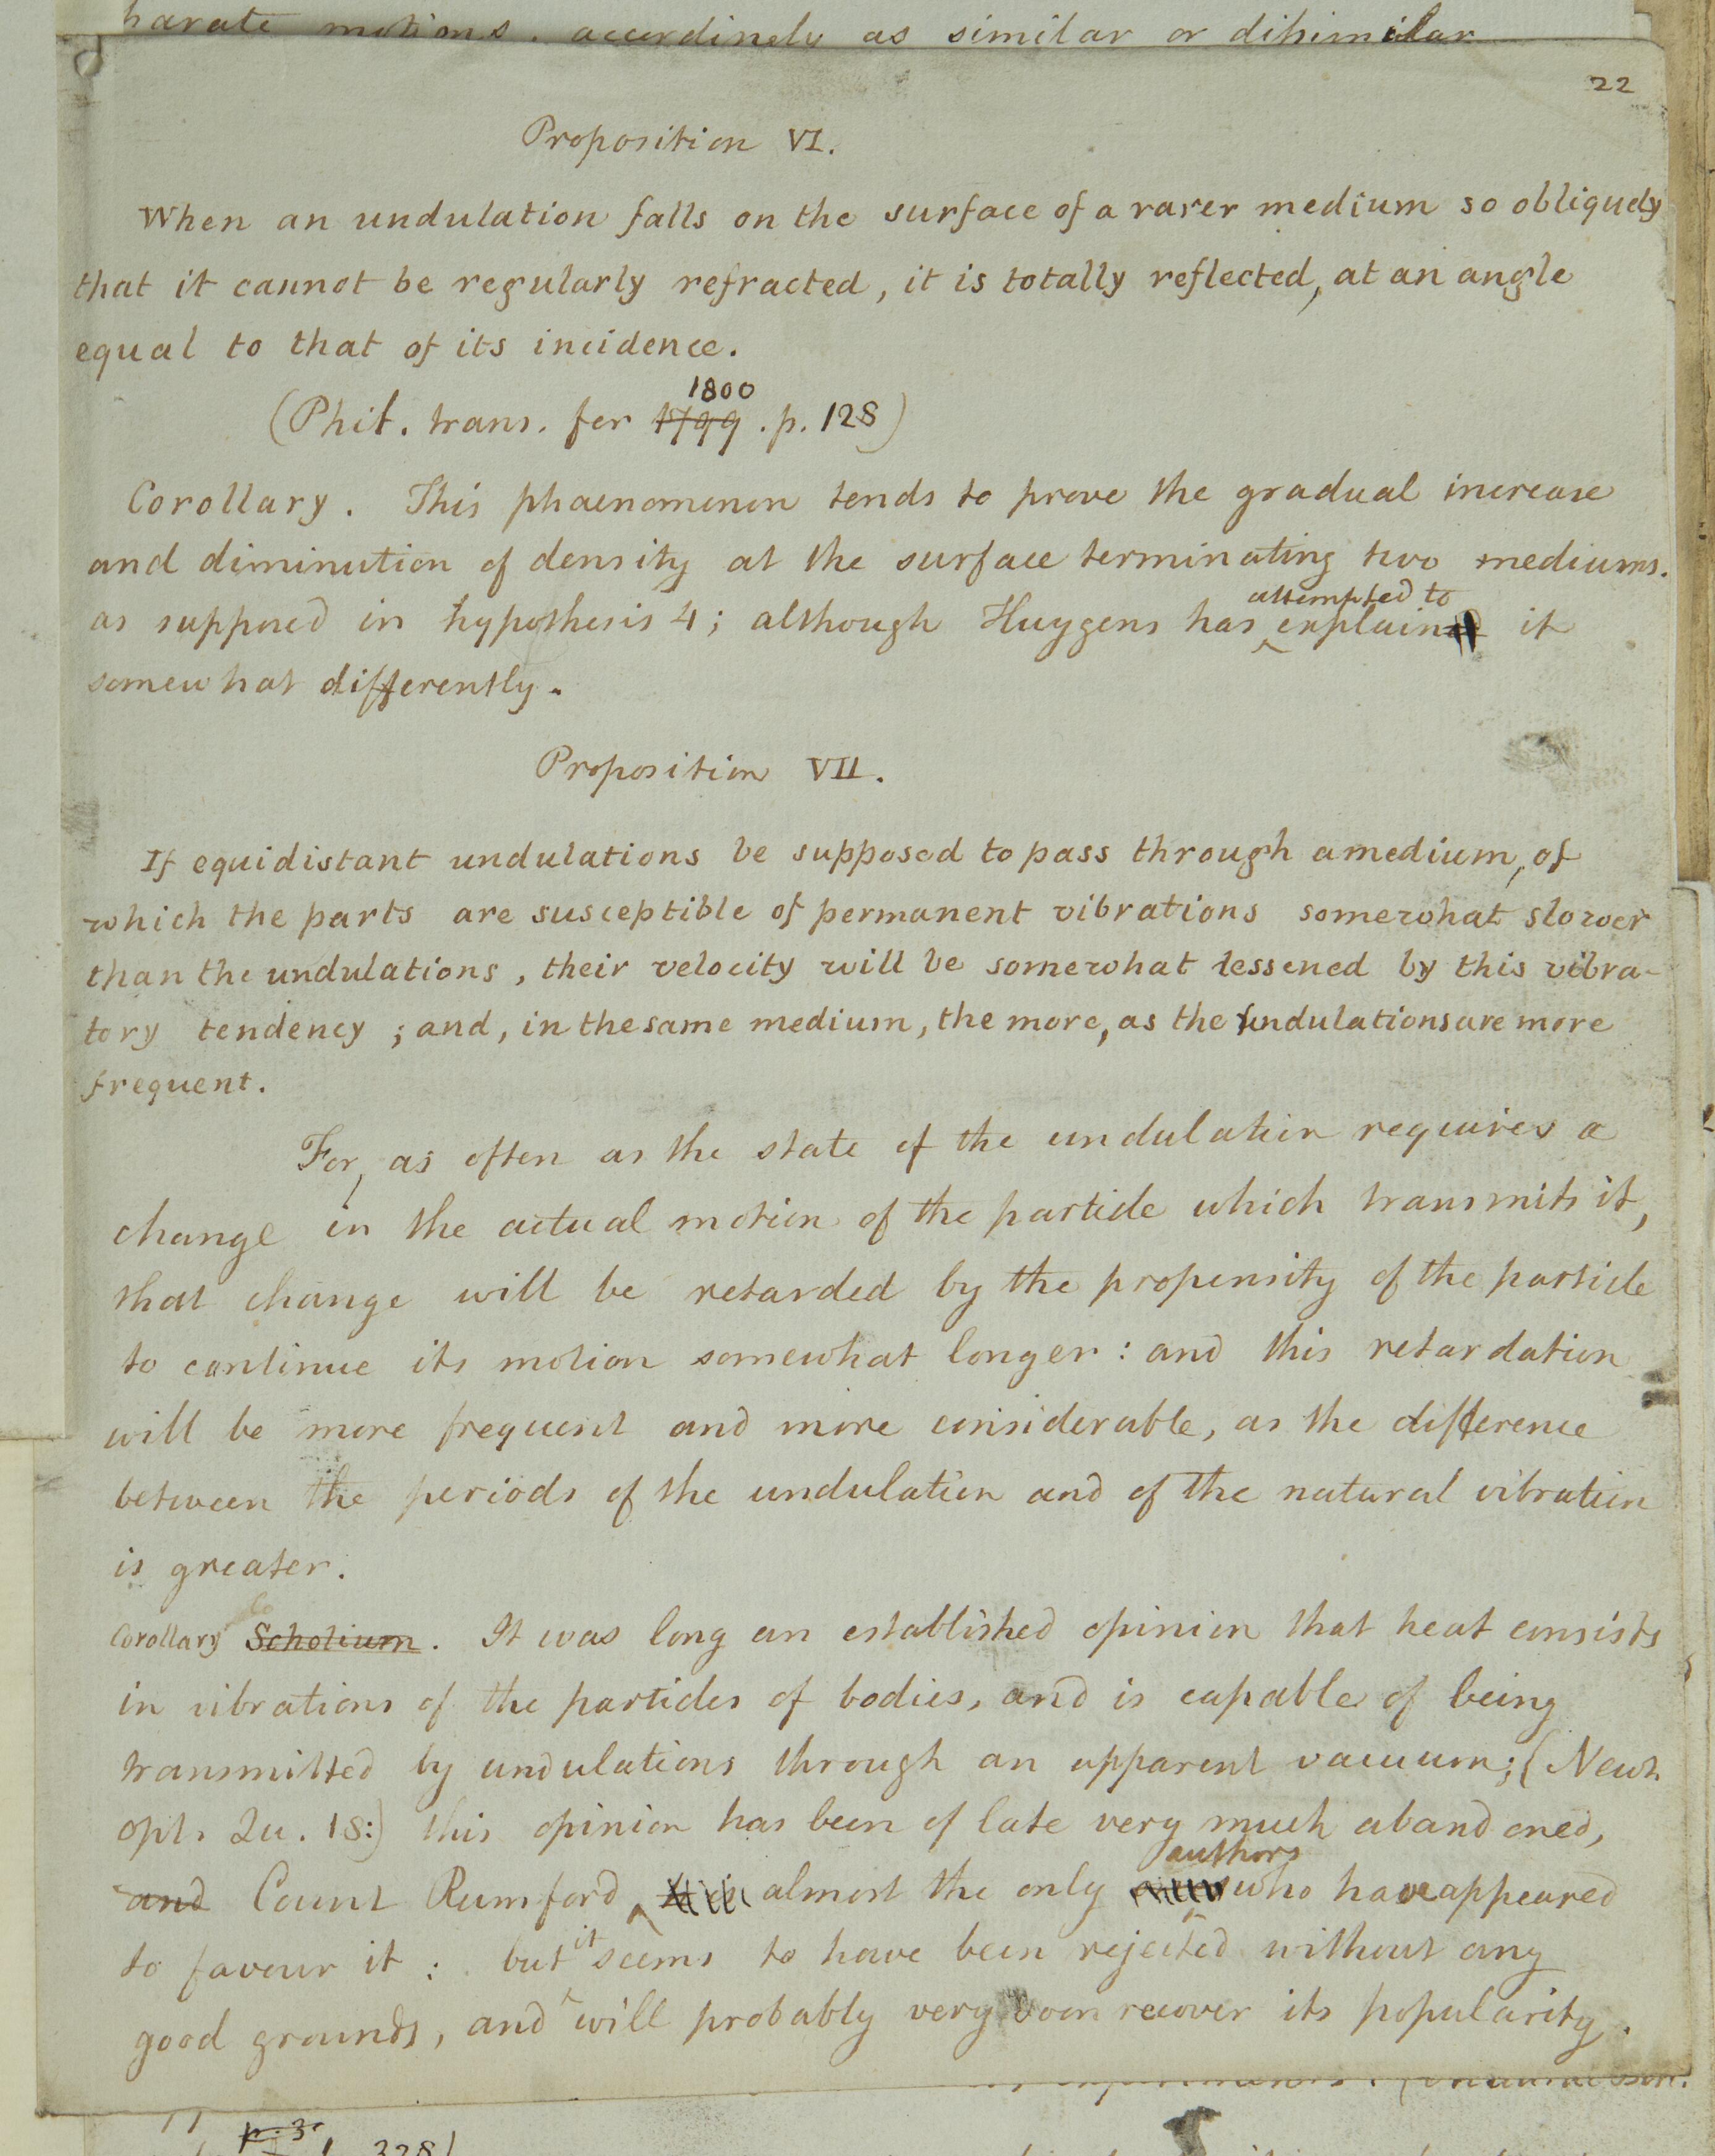 harate motions. accordingly as similar or dissimilar
22
Proposition VI.
When an undulation falls on the surface of a rarer medium so obliquely
that it cannot be regularly refracted, it is totally reflected, at an angle
equal to that of its incidence.
1800
(Phil. trans. for 1799 . p. 128)
Corollary. This phaenomenon tends to prove the gradual increase
and diminution of density at the surface terminating two mediums.
attempted to
as supposed in hypothesis 4; although Huygens has explain it
somewhat differently.
Proposition VII.
If equidistant undulations be supposed to pass through a medium, of
which the parts are susceptible of permanent vibrations somewhat slower
than the undulations, their velocity will be somewhat lessened by this vibra-
tory tendency; and, in the same medium, the more, as the undulations are more
frequent.
For, as often as the state of the undulation requires a
change in the actual motion of the particle which transmits it,
that change will be retarded by the propensity of the particle
to continue its motion somewhat longer: and this retardation
will be more frequent and more considerable, as the difference
between the periods of the undulation and of the natural vibration
is greater.
Corollary Scholium. It was long an established opinion that heat consists
in vibrations of the particles of bodies, and is capable of being
transmitted by undulations through an apparent vacuum; (Newt.
opt. Qu. 18:) this opinion has been of late very much abandoned,
authors
and Count Rumford almost the only who have appeared
to favour it: but it seems to have been rejected without any
good grounds, and will probably very soon recover its popularity.
p. 3
328)